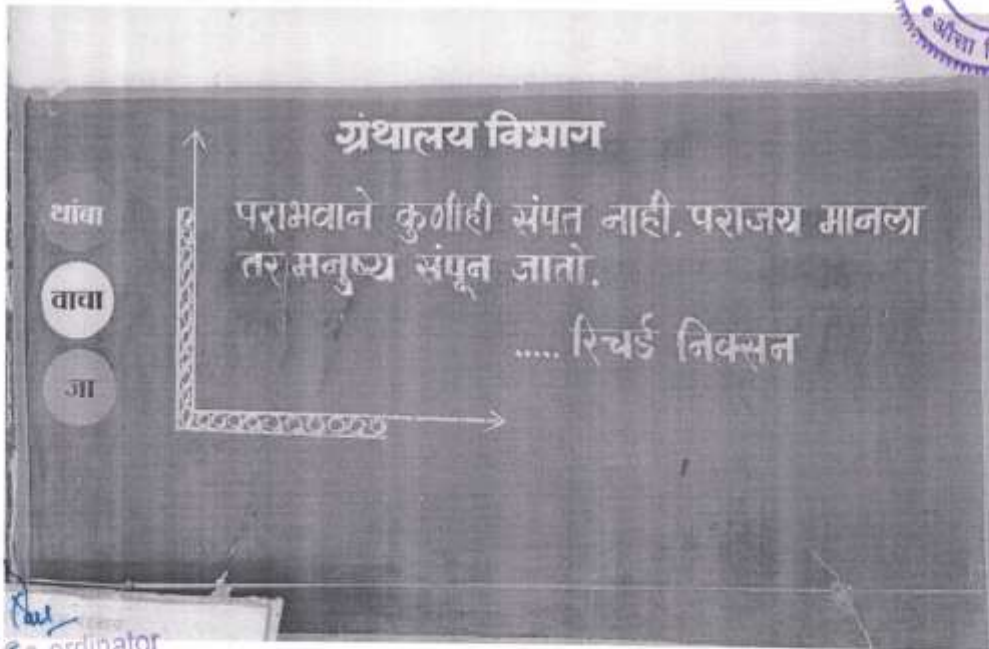 औसा
ग्रंथालय विभाग
थांबा
वाचा
जा
पराभवाने कुणीही संपत नाही. पराजय मानला
तर मनुष्य संपून जातो.
..... रिचर्ड निक्सन
ordinator